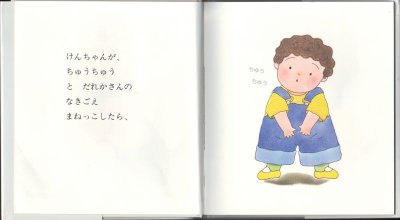 けんちゃんが、
ちゅうちゅう
と　だれかさんの
なきごえ
まねっこしたら、
ちゅう
ちゅう